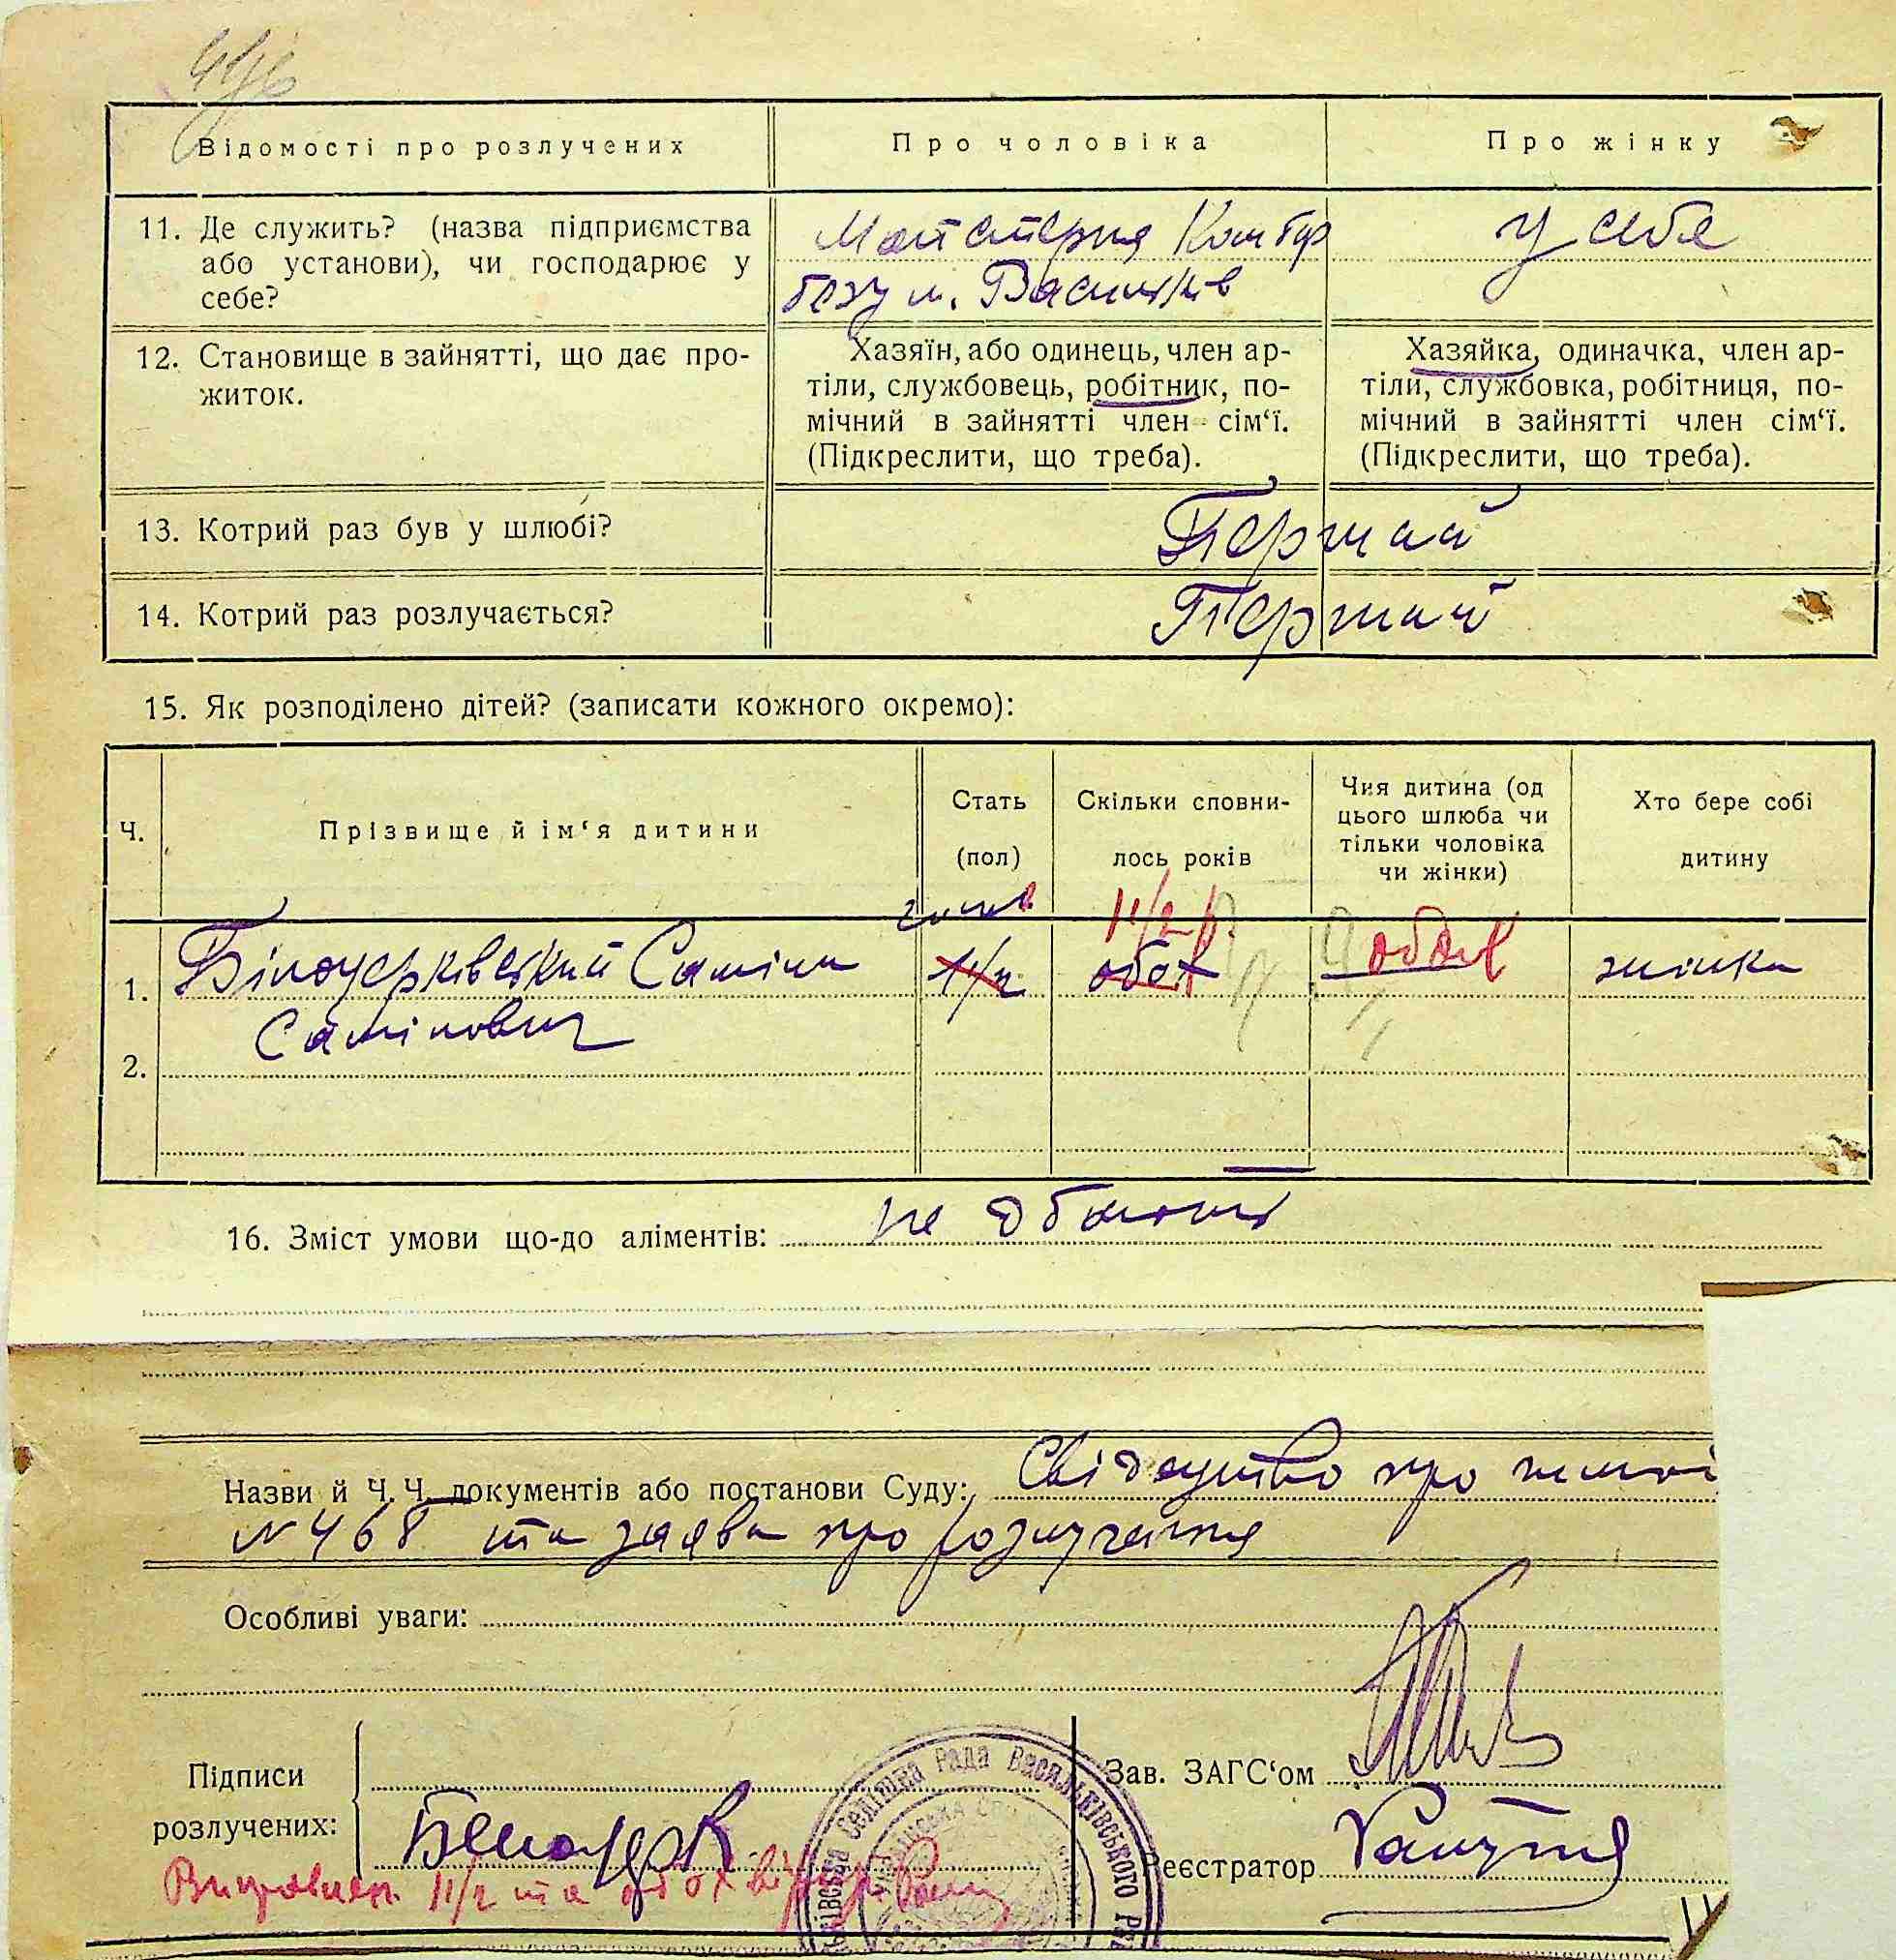 Відомості про розлучених
Про чоловіка
Про жінку
11. Де служить? (назва підприємства
або установи), чи господарює у
себе?
Майстерня Комбор
безу м. Васильків
у себе
12. Становище в зайнятті, що дає про-
житок.
Хазяїн, або одинець, член ар-
тіли, службовець, робітник, по-
мічний в зайнятті член сім‘ї.
(Підкреслити, що треба).
Хазяйка, одиначка, член ар-
тіли, службовка, робітниця, по-
мічний в зайнятті член сім‘ї.
(Підкреслити, що треба).
13. Котрий раз був у шлюбі?
Перший
14. Котрий раз розлучається?
Перший
15. Як розподілено дітей? (записати кожного окремо):
Ч.
Прізвище й ім‘я дитини
Стать
(пол)
Скільки сповни-
лось років
Чия дитина (од
цього шлюба чи
тільки чоловіка
чи жінки)
Хто бере собі
дитину
1. Білоцерківський
1½
1½ р.
обох
обох
жінка
2.
16. Зміст умови що-до аліментів: не
Назви й Ч.Ч. документів або постанови Суду: Свідоцтво про шлюб
№ 468 та заява про розлучення
Особливі уваги:
Підписи
розлучених:
Зав. ЗАГС‘ом
Реєстратор
1½ та обох
Селищна Рада Васильківського